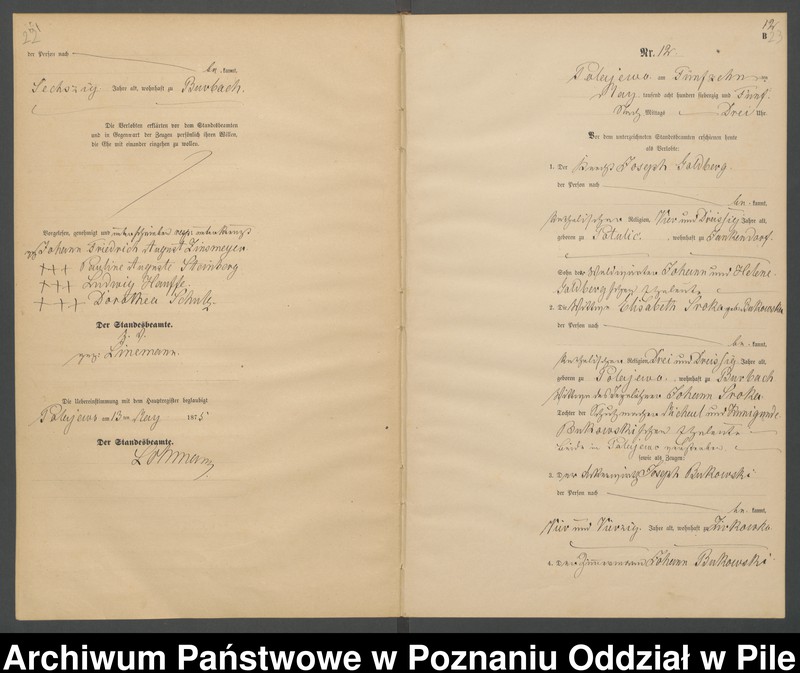 22
der Person nach
be= kannt,
Sechszig Jahre alt, wohnhaft zu Burbach.
Die Verlobten erklärten vor dem Standesbeamten
und in Gegenwart der Zeugen persönlich ihren Willen,
die Ehe mit einander eingehen zu wollen.
Vorgelesen, genehmigt und unterschrieben resp. unterkreuzt
gez. Johann Friedrich August Linsmeyer
+++ Pauline Auguste Steinberg
+++ Ludwig Hauffe
+++ Dorothea Schulz
Der Standesbeamte.
gez. Linemann.
Die Uebereinstimmung mit dem Hauptregister beglaubigt
Polajewo am 13 ten May 1875
Der Standesbeamte.
Lohmann
12
B 23
Nr. 12.
Polajewo am Fünfzehn ten
May tausend acht hundert siebenzig und Fünf
Nach Mittags Drei Uhr.
Vor dem unterzeichneten Standesbeamten erschienen heute
als Verlobte:
1. Der Knecht Joseph Goldberg
der Person nach
be= kannt,
katholischer Religion, Vier und Dreissig Jahre alt,
geboren zu Potulic, wohnhaft zu Jankendorf.
Sohn der Johann und Helene
Goldberg'schen Eheleute
2. Die Wittwe Elisabeth Sroka geb. Bukowska
der Person nach
be= kannt,
katholischer Religion, Drei und Dreissig Jahre alt,
geboren zu Polajewo, wohnhaft zu Burbach
Wittwe des Johann Sroka
Tochter der Michael und Kunigunde
Bukowski'schen Eheleute
beide in Polajewo verstorben.
sowie als Zeugen:
3. Der Ackerwirth Joseph Bukowski
der Person nach
be= kannt,
Vier und Vierzig Jahre alt, wohnhaft zu
4. Der Zimmermann Johann Bukowski
Archiwum Państwowe w Poznaniu Oddział w Pile